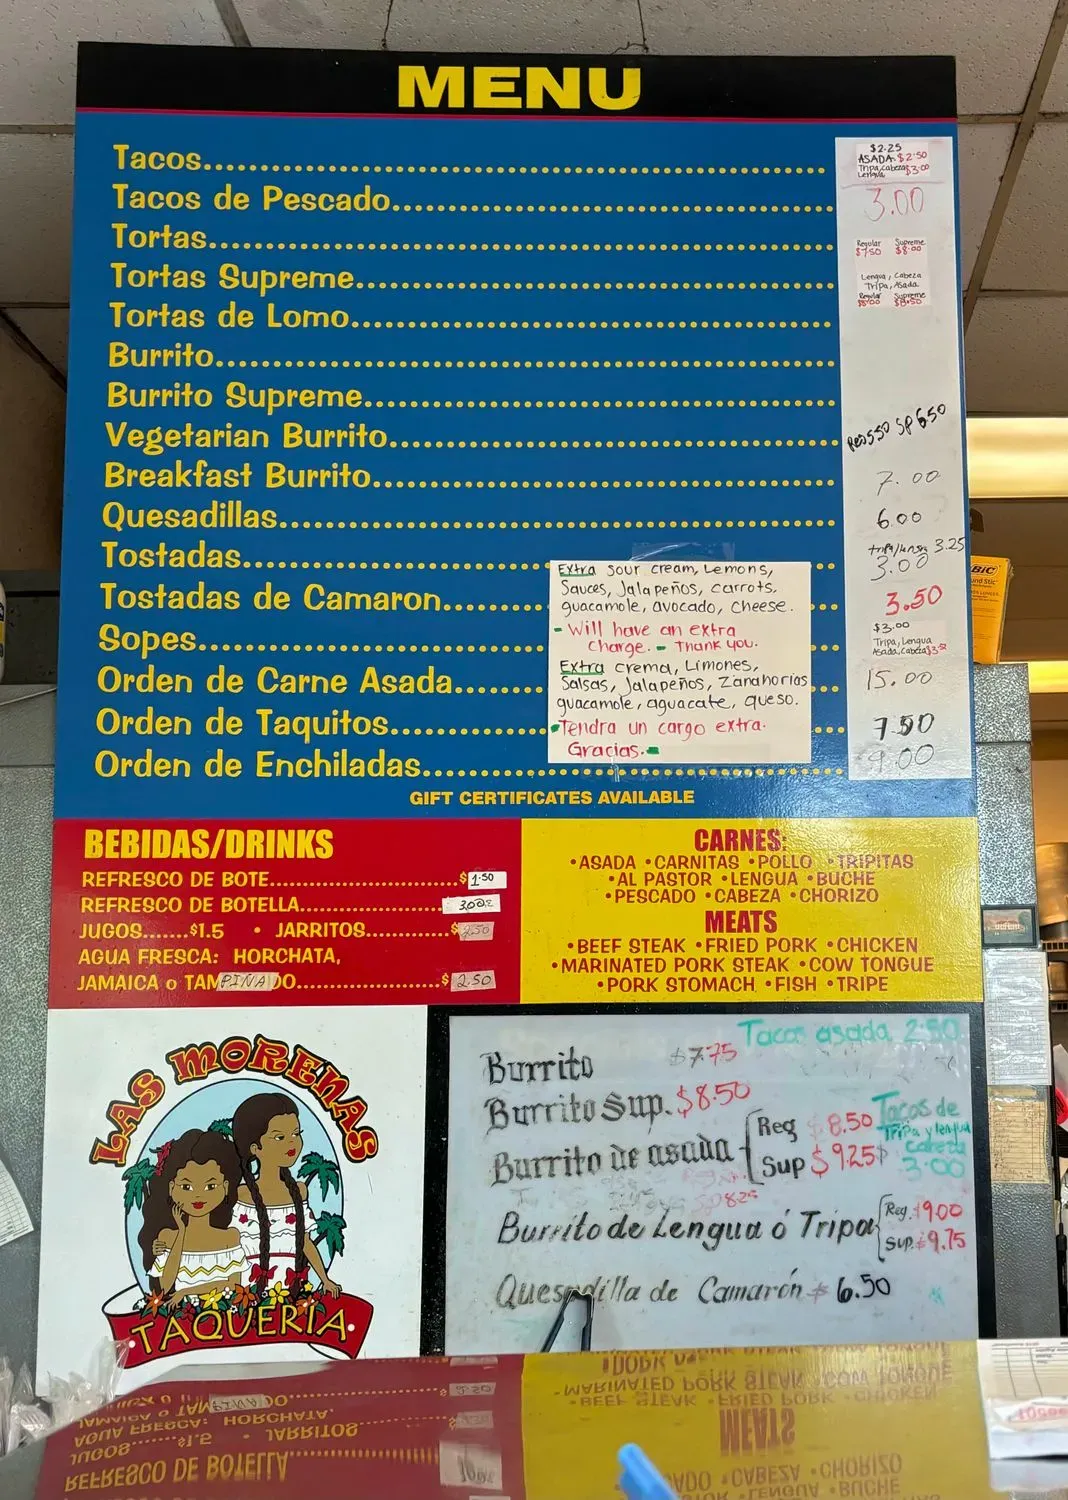 MENU
Tacos
$2.25
ASADA $2.50
Tripa, cabeza $3.00
Lengua
Tacos de Pescado
3.00
Tortas
Regular Supreme
$7.50 $8.00
Tortas Supreme
Lengua, Cabeza
Tripa, Asada
Regular Supreme
$8.00 $8.50
Tortas de Lomo
Burrito
Burrito Supreme
Vegetarian Burrito
REG 5.50 SP 6.50
Breakfast Burrito
7.00
Quesadillas
6.00
Tostadas
3.25
3.00
Tostadas de Camaron
3.50
Sopes
$3.00
Tripa, Lengua
Asada, Cabeza
Orden de Carne Asada
15.00
Orden de Taquitos
7.50
Orden de Enchiladas
9.00
Extra sour cream, Lemons,
Sauces, Jalapeños, carrots,
guacamole, avocado, cheese.
- Will have an extra
charge. - Thank you.
Extra crema, Limones,
Salsas, Jalapeños, Zanahorias
guacamole, aguacate, queso.
Tendra un cargo extra.
Gracias. -
GIFT CERTIFICATES AVAILABLE
BEBIDAS/DRINKS
REFRESCO DE BOTE $1.50
REFRESCO DE BOTELLA
JUGOS.......$1.5 • JARRITOS $2.50
AGUA FRESCA: HORCHATA,
JAMAICA o TAMPINADO $2.50
CARNES:
•ASADA •CARNITAS •POLLO •TRIPITAS
•AL PASTOR •LENGUA •BUCHE
•PESCADO •CABEZA •CHORIZO
MEATS
•BEEF STEAK •FRIED PORK •CHICKEN
•MARINATED PORK STEAK •COW TONGUE
•PORK STOMACH •FISH •TRIPE
LAS MORENAS
TAQUERIA
Tacos asada 2.50
Burrito $7.75
Burrito Sup. $8.50
Burrito de asada
Reg 8.50
Sup $9.25
Tacos de
Tripa y lengua
Cabeza
3.00
Burrito de Lengua ó Tripa
Reg. $9.00
Sup. $9.75
Quesadilla de Camarón $6.50
BIC